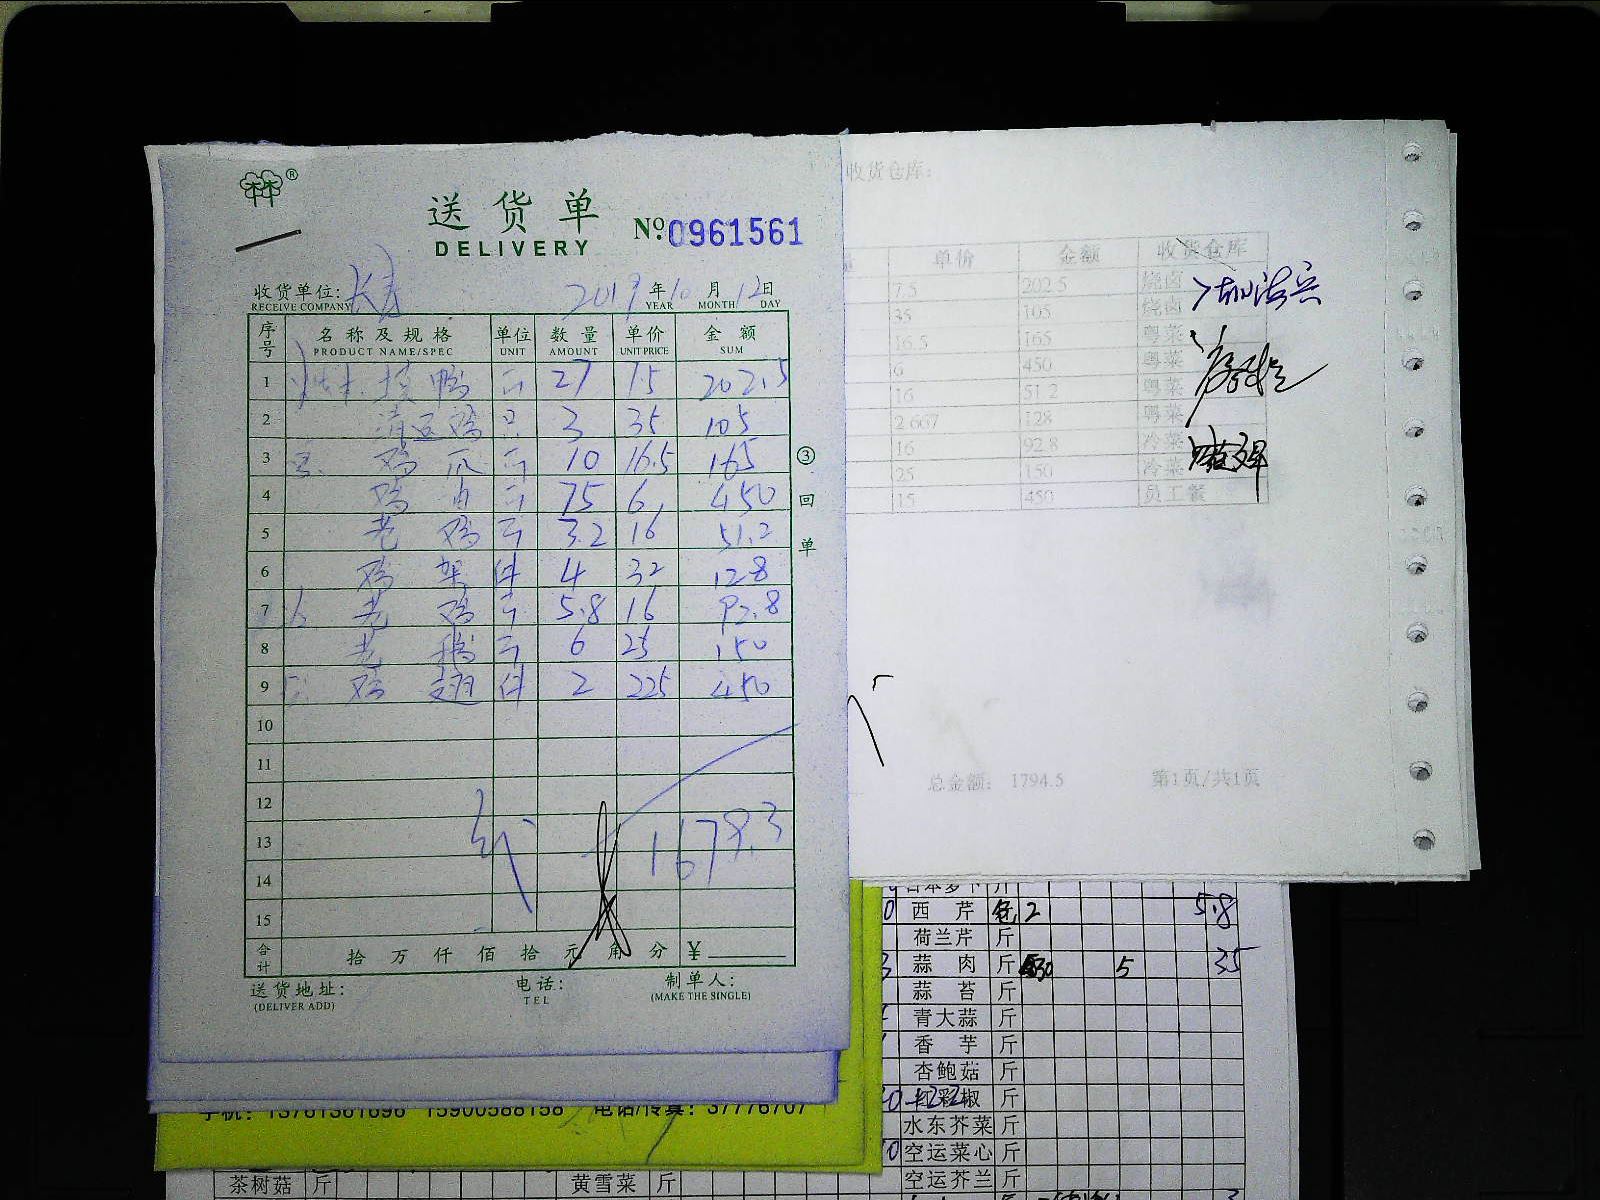 送货单
DELIVERY
№:0961561
收货单位:长寿
RECEIVE COMPANY
2019年10月12日
YEAR MONTH DAY
序号 名称及规格 单位 数量 单价 金额
PRODUCT NAME/SPEC UNIT AMOUNT UNIT PRICE SUM
1 鸭 斤 27 15 202.5
2 清远鸡 只 3 35 105
3 鸡爪 斤 10 16.5 165
4 鸡 斤 75 6 450
5 老鸡 斤 3.2 16 51.2
6 鸡架 件 4 32 128
7 老鸡 斤 5.8 16 92.8
8 老鹅 斤 6 25 150
9 鸡翅 件 2 225 450
10
11
12
13 1679.3
14
15
合计 拾万仟佰拾元角分 ¥
送货地址:
(DELIVER ADD)
电话:
TEL
制单人:
(MAKE THE SINGLE)
③回单
收货仓库:
单价 金额 收货仓库
7.5 202.5 烧卤
35 105 烧卤
16.5 165 粤菜
6 450 粤菜
16 51.2 粤菜
2.667 128 粤菜
16 92.8 冷菜
25 150 冷菜
15 450 员工餐
总金额: 1794.5 第1页/共1页
日本萝卜 斤
西芹 2 5.8
荷兰芹 斤
蒜肉 斤 5 35
蒜苔 斤
青大蒜 斤
香芋 斤
杏鲍菇 斤
红彩椒 斤
水东芥菜 斤
空运菜心 斤
空运芥兰 斤
手机: 13761381696 15900588158 电话/传真: 37776707
茶树菇 斤 黄雪菜 斤